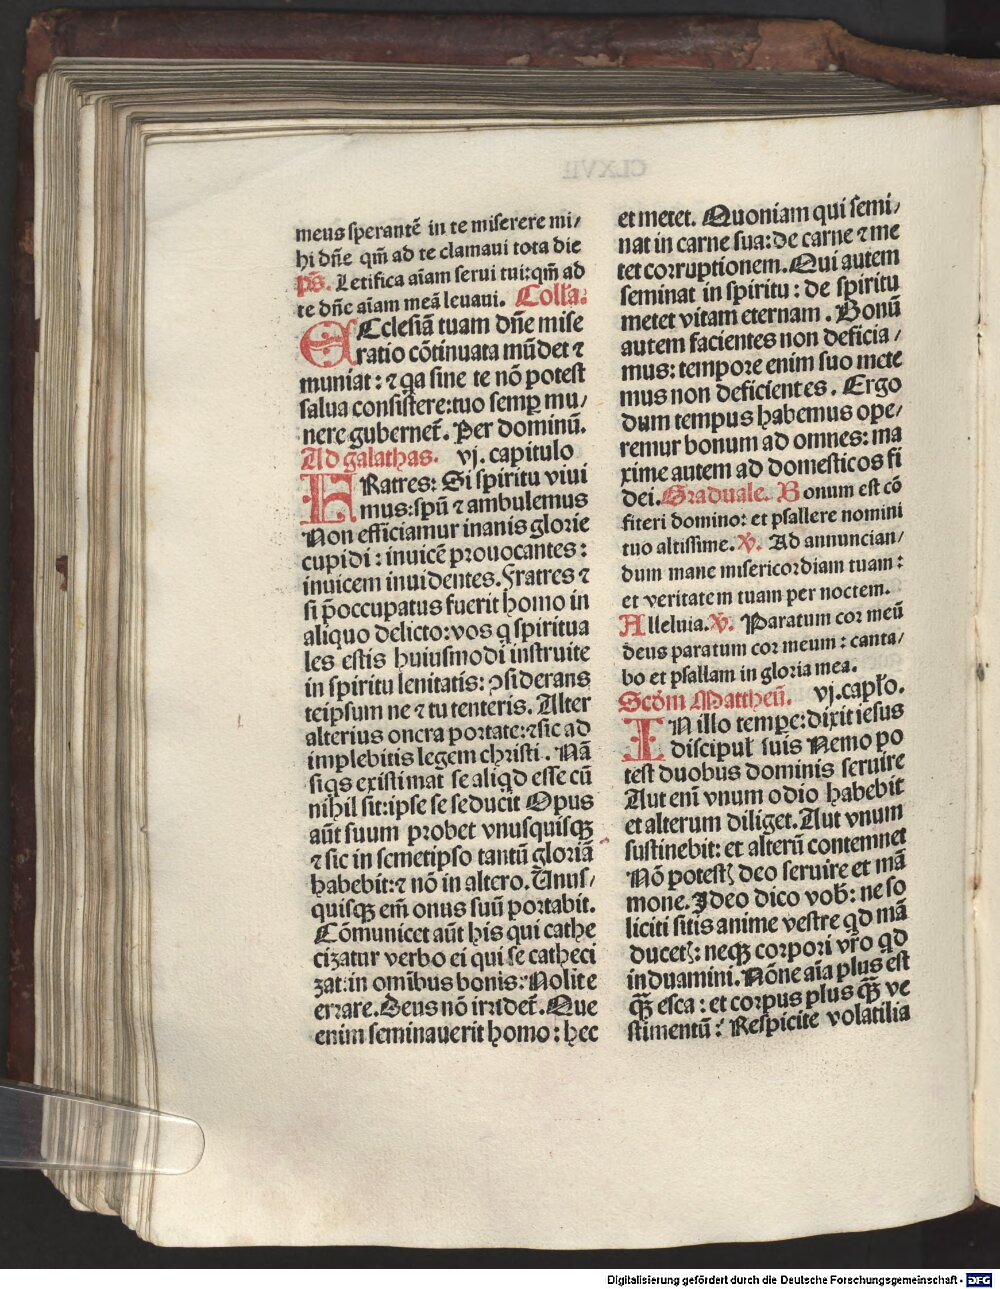 meus sperantē in te miserere mi/
hi dñe qm̄ ad te clamaui tota die
ps̄. Letifica aīam serui tui: qm̄ ad
te dñe aīam meā leuaui. Collā.
ECclesiā tuam dñe mise
ratio cōtinuata mūdet ⁊
muniat: ⁊ qa sine te nō potest
salua consistere: tuo semꝑ mu/
nere gubernet̄. Per dominū.
Ad galathas. vj. capitulo
FRatres: Si spiritu viui
mus: spū ⁊ ambulemus
Non efficiamur inanis glorie
cupidi: inuicē prouocantes:
inuicem inuidentes. Fratres ⁊
si p̄occupatus fuerit homo in
aliquo delicto: vos q spiritua
les estis huiusmodi instruite
in spiritu lenitatis: ꝯsiderans
teipsum ne ⁊ tu tenteris. Alter
alterius onera portate: ⁊ sic ad
implebitis legem christi. Nā
siqs existimat se aliqd esse cū
nihil sit: ipse se seducit Opus
aūt suum probet vnusquisqꝫ
⁊ sic in semetipso tantū gloriā
habebit: ⁊ nō in altero. Unus/
quisqꝫ em̄ onus suū portabit.
Cōmunicet aūt his qui cathe
cizatur verbo ei qui se catheci
zat: in omībus bonis: Nolite
errare. Deus nō irridet̄. Que
enim seminauerit homo: hec
et metet. Quoniam qui semi/
nat in carne sua: de carne ⁊ me
tet corruptionem. Qui autem
seminat in spiritu: de spiritu
metet vitam eternam. Bonū
autem facientes non deficia/
mus: tempore enim suo mete
mus non deficientes. Ergo
dum tempus habemus ope/
remur bonum ad omnes: ma
xime autem ad domesticos fi
dei. Graduale. Bonum est cō
fiteri domino: et psallere nomini
tuo altissime. ℣. Ad annuncian/
dum mane misericordiam tuam:
et veritatem tuam per noctem.
Alleluia. ℣. Paratum cor meū
deus paratum cor meum: canta/
bo et psallam in gloria mea.
Scdm̄ Mattheū. vj. capło.
IN illo temꝑe: dixit iesus
discipuł suis Nemo po
test duobus dominis seruire
Aut enī vnum odio habebit
et alterum diliget. Aut vnum
sustinebit: et alterū contemnet
Nō potestꝭ deo seruire et mā
mone. Ideo dico vob̄: ne so
liciti sitis anime vestre qd mā
ducetꝭ: neqꝫ corpori vr̄o qd
induamini. Nōne aīa plus est
qꝫ̄ esca: et corpus plus qꝫ̄ ve
stimentū: Respicite volatilia
Digitalisierung gefördert durch die Deutsche Forschungsgemeinschaft - DFG